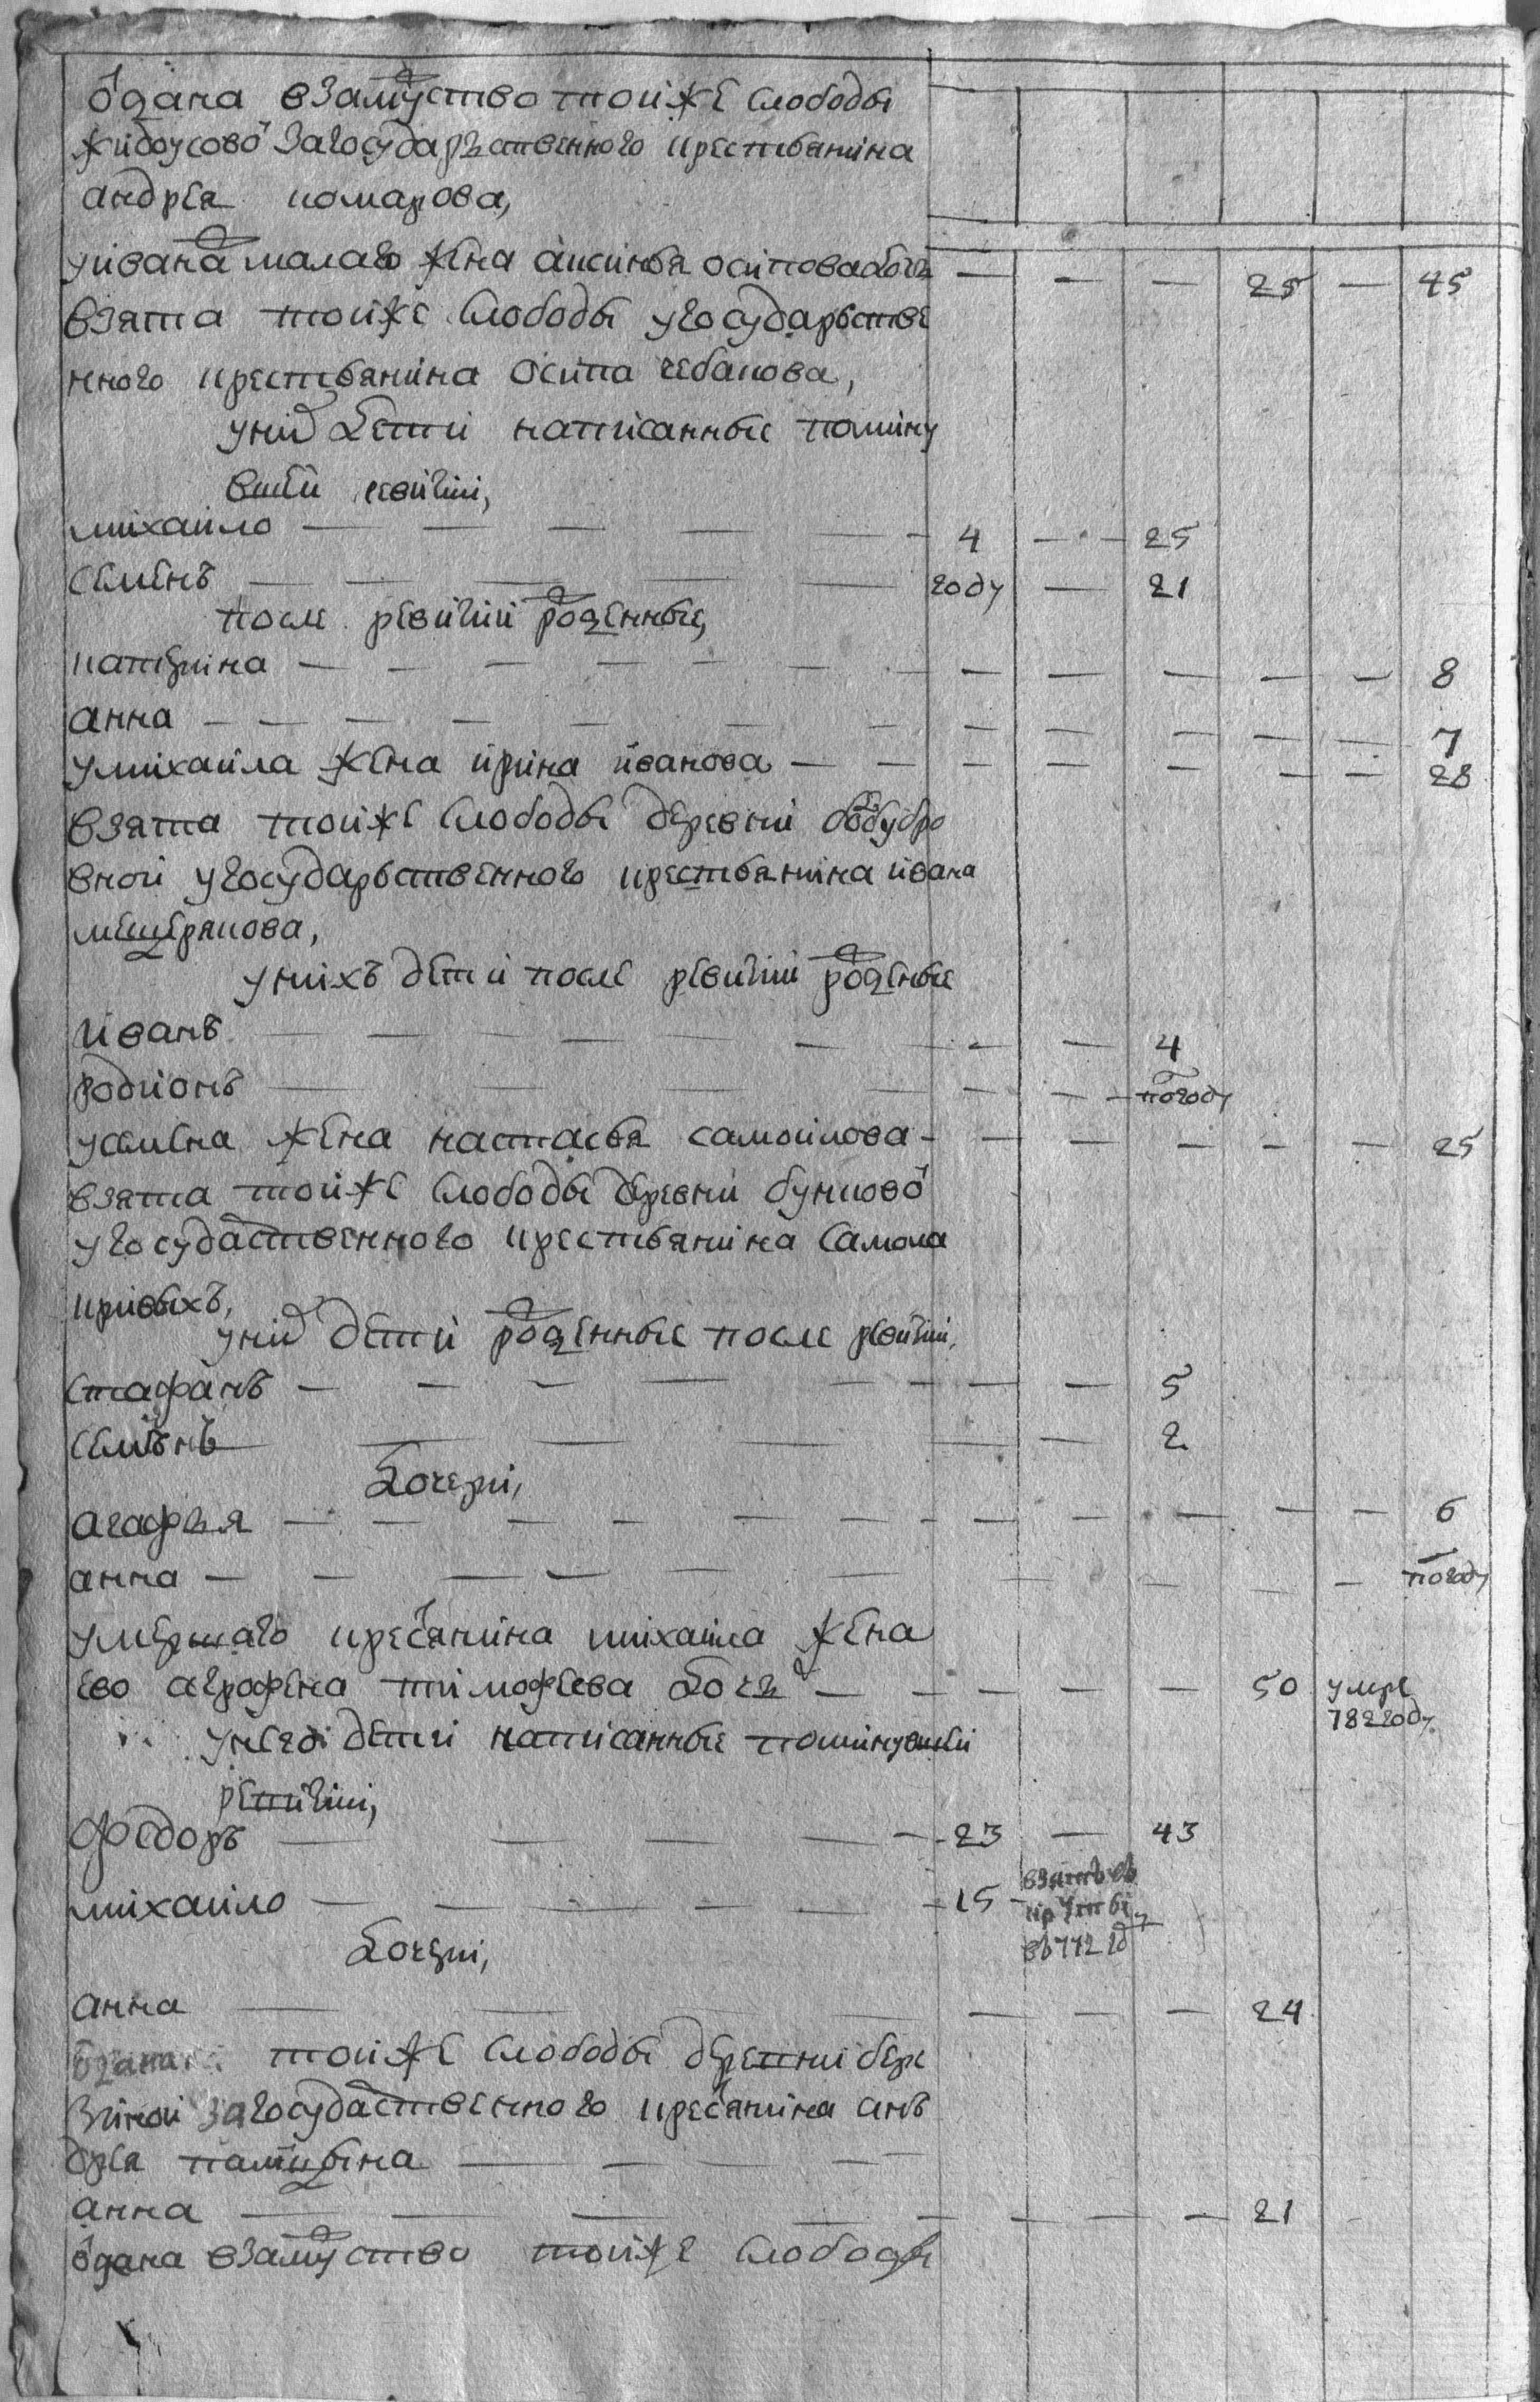 одана взамуство тойже слободы
жидоусово загосударственного крестьянина
андрея комарова,
уивана малаго жена аксинья осиповадочь — — — 25 — 45
взята тойже слободы угосударьстве
нного крестьянина осипа чебакова,
уних дети написанные помину
вшей ревизии,
михаило — — — — — 4 — — 25
семенъ — — — — — году — 21
после ревизии роденные,
катерина — — — — — — — — — — — 8
анна — — — — — — — — — — — 7
умихаила жена ирина иванова — — — — — — — 28
взята тойже слободы деревни
вной угосударьственного крестьянина ивана
мещерякова,
унихъ дети после ревизии роденые
иванъ — — — — — — — 4
родионъ — — — — — — — погоду
усемена жена настасья самоилова — — — — — — 25
взята тойже слободы деревни бунково
угосудаственного крестьянина самоила
кривыхъ,
уних дети роденные после ревизии,
стафанъ — — — — — — — 5
семѣнъ — — — — — — 2
дочери,
агафья — — — — — — — — — — — 6
анна — — — — — — — — — — погоду
умершаго кресянина михаила жена
ево агрофена тимофеева дочь — — — — — 50 умре
782 году
унеево дети написанные поминувшей
ревизии,
федоръ — — — — — 23 — 43
михаило — — — — — 15 — взятъ въ
въ 772 гд
дочери,
анна — — — — — — 24
одана тойже слободы деревни бере
зиной загосудаственного кресянина анъ
дрея — — — —
анна — — — — — — — 21
одана взамуство тойже слободы